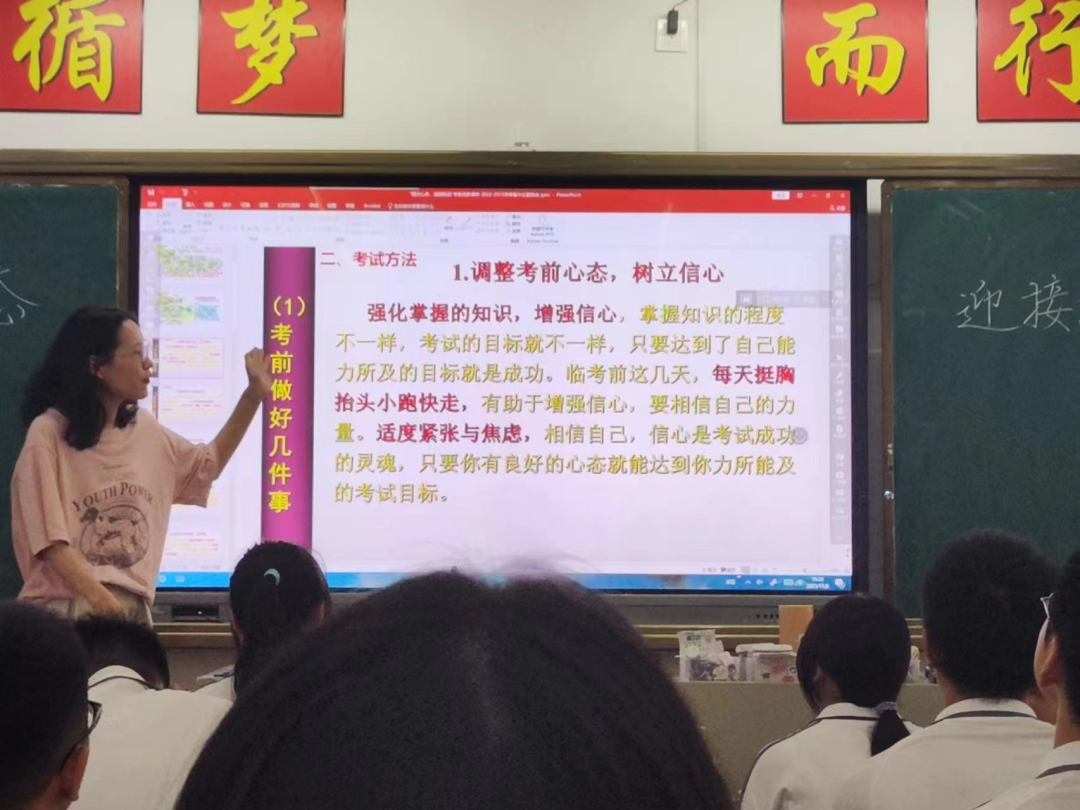 循梦
而行
二、考试方法
1.调整考前心态，树立信心
（1）考前做好几件事
强化掌握的知识，增强信心，掌握知识的程度
不一样，考试的目标就不一样，只要达到了自己能
力所及的目标就是成功。临考前这几天，每天挺胸
抬头小跑快走，有助于增强信心，要相信自己的力
量。适度紧张与焦虑，相信自己，信心是考试成功
的灵魂，只要你有良好的心态就能达到你力所能及
的考试目标。
迎接
YOUTH POWER